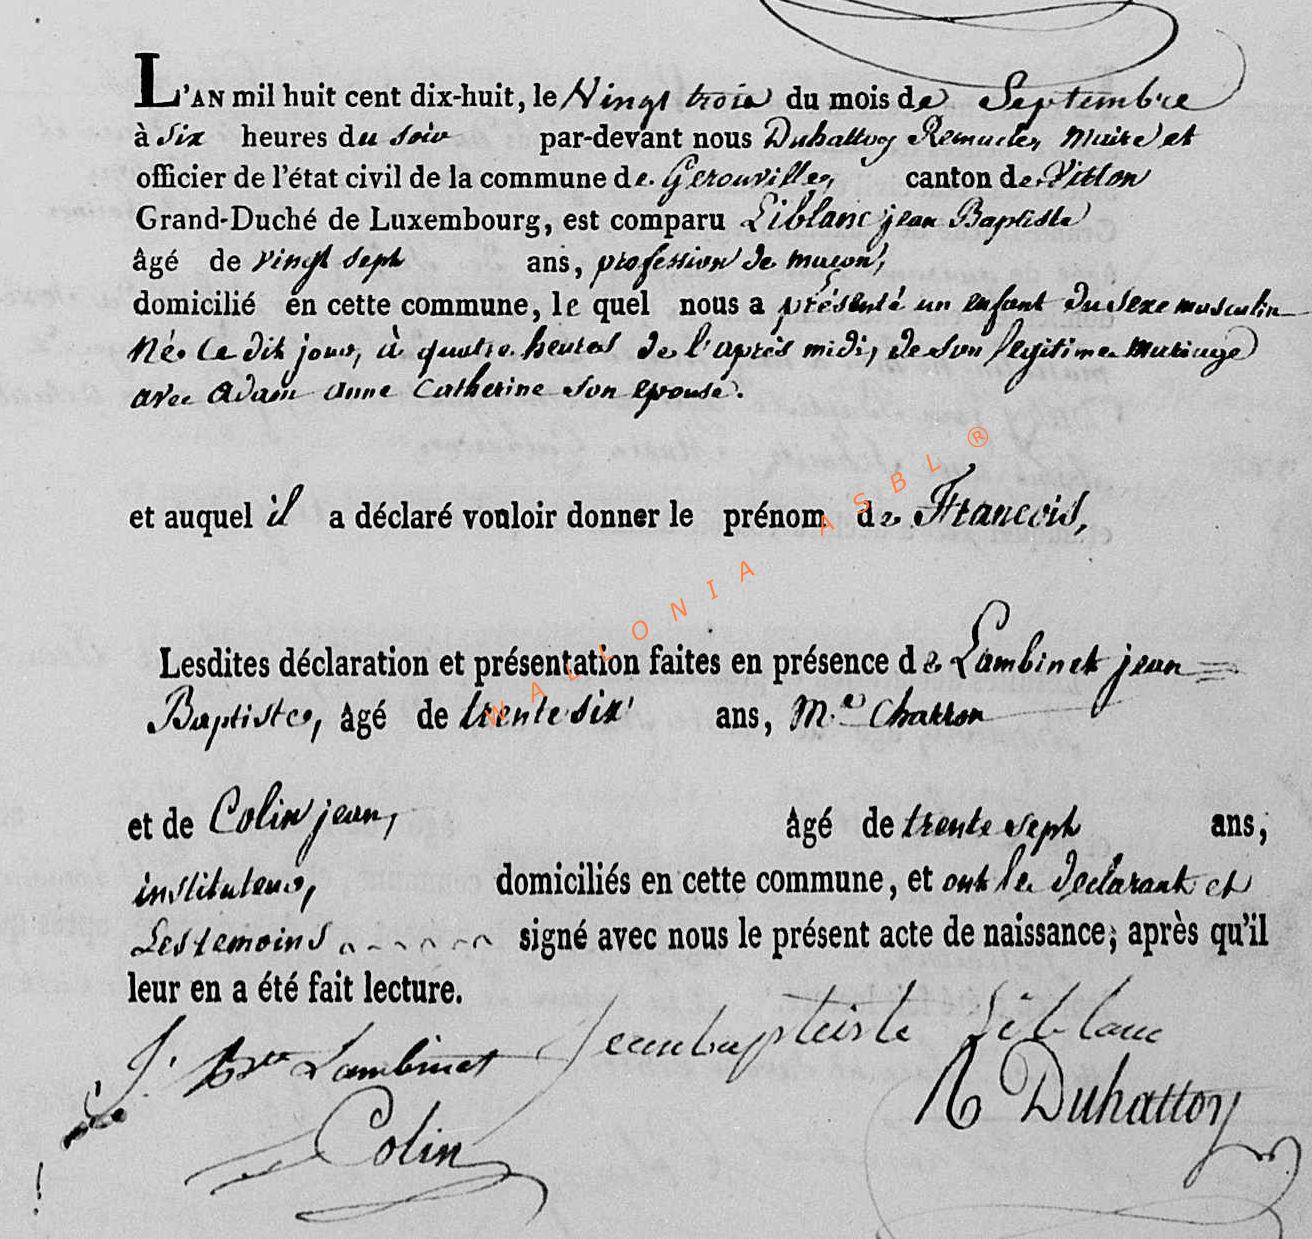 L'AN mil huit cent dix-huit, le Vingt trois du mois de Septembre
à Six heures du soir par-devant nous Duhattoy Remacle, Maire et
officier de l'état civil de la commune de Gerouville, canton de Virton
Grand-Duché de Luxembourg, est comparu Liblanc jean Baptiste
âgé de vingt sept ans, profession de maçon,
domicilié en cette commune, le quel nous a présenté un enfant du Sexe masculin
Né Le dit jour, à quatre heures de l'après midi, de son légitime Mariage
avec Adam Anne Catherine Son épouse.
et auquel il a déclaré vouloir donner le prénom de Francois,
Lesdites déclaration et présentation faites en présence de Lambinet jean
Baptiste, âgé de trente six ans, M.e Charron
et de Colin jean, âgé de trente sept ans,
instituteur, domiciliés en cette commune, et ont le déclarant et
Les temoins signé avec nous le présent acte de naissance; après qu'il
leur en a été fait lecture.
J. Bte Lambinet Jeanbapteiste Liblanc
Colin R Duhattoy
WALLONIA ASBL ®